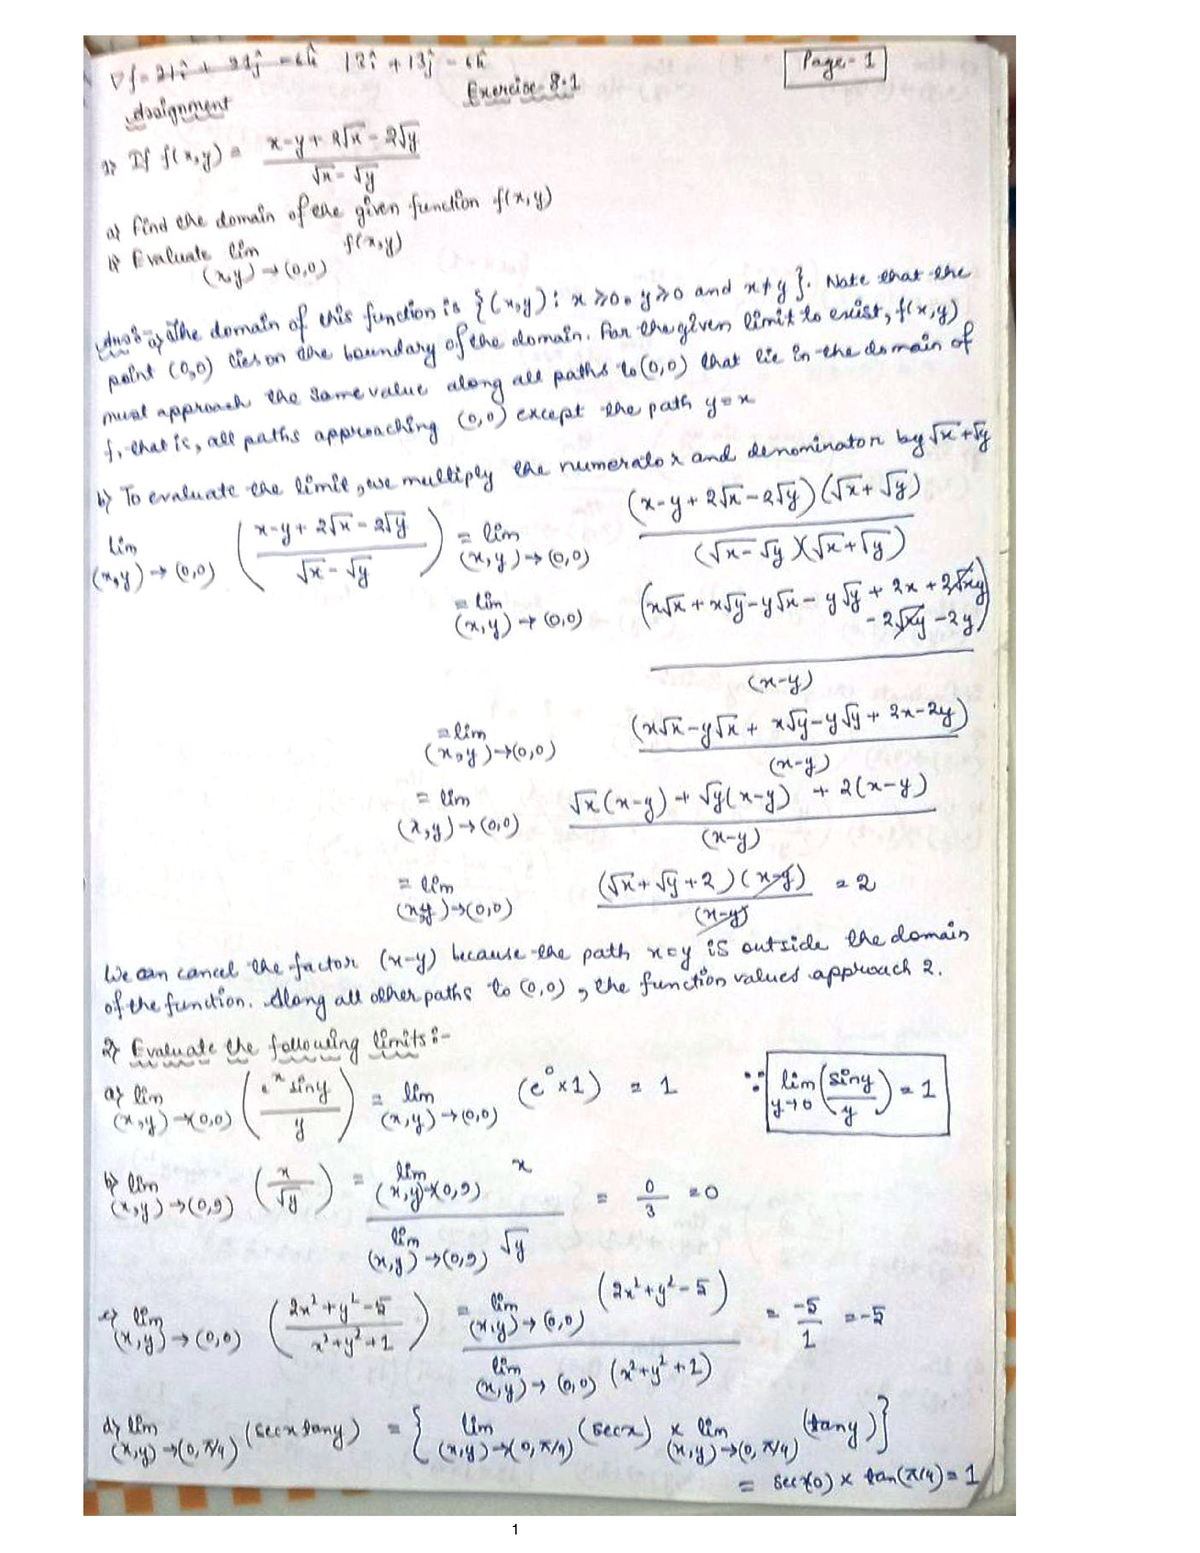 ∇f = 21î + 21ĵ - 6k̂  12î + 13ĵ - 6k̂  Page-1
Assignment  Exercise-8.1
1) If f(x,y) = (x-y+2√x-2√y)/(√x-√y)
a) Find the domain of the given function f(x,y)
b) Evaluate lim (x,y)→(0,0) f(x,y)
Ans:- a) The domain of this function is {(x,y): x≥0, y≥0 and x≠y}. Note that the
point (0,0) lies on the boundary of the domain. For the given limit to exist, f(x,y)
must approach the same value along all paths to (0,0) that lie in the domain of
f, that is, all paths approaching (0,0) except the path y=x
b) To evaluate the limit, we multiply the numerator and denominator by √x+√y
lim (x,y)→(0,0) ((x-y+2√x-2√y)/(√x-√y)) = lim (x,y)→(0,0) (x-y+2√x-2√y)(√x+√y)/(√x-√y)(√x+√y)
= lim (x,y)→(0,0) (x√x+x√y-y√x-y√y+2x+2√xy-2√xy-2y)/(x-y)
= lim (x,y)→(0,0) (x√x-y√x+x√y-y√y+2x-2y)/(x-y)
= lim (x,y)→(0,0) (√x(x-y)+√y(x-y)+2(x-y))/(x-y)
= lim (x,y)→(0,0) (√x+√y+2)(x-y)/(x-y) = 2
We can cancel the factor (x-y) because the path x=y is outside the domain
of the function. Along all other paths to (0,0), the function values approach 2.
2) Evaluate the following limits:-
a) lim (x,y)→(0,0) (eˣ siny/y) = lim (x,y)→(0,0) (e⁰×1) = 1  ∵ lim y→0 (siny/y) = 1
b) lim (x,y)→(0,9) (x/√y) = lim (x,y)→(0,9) x / lim (x,y)→(0,9) √y = 0/3 = 0
c) lim (x,y)→(0,0) ((2x²+y²-5)/(x²+y²+1)) = lim (x,y)→(0,0) (2x²+y²-5) / lim (x,y)→(0,0) (x²+y²+1) = -5/1 = -5
d) lim (x,y)→(0,π/4) (secx tany) = {lim (x,y)→(0,π/4) (secx) × lim (x,y)→(0,π/4) (tany)}
= sec(0) × tan(π/4) = 1
1